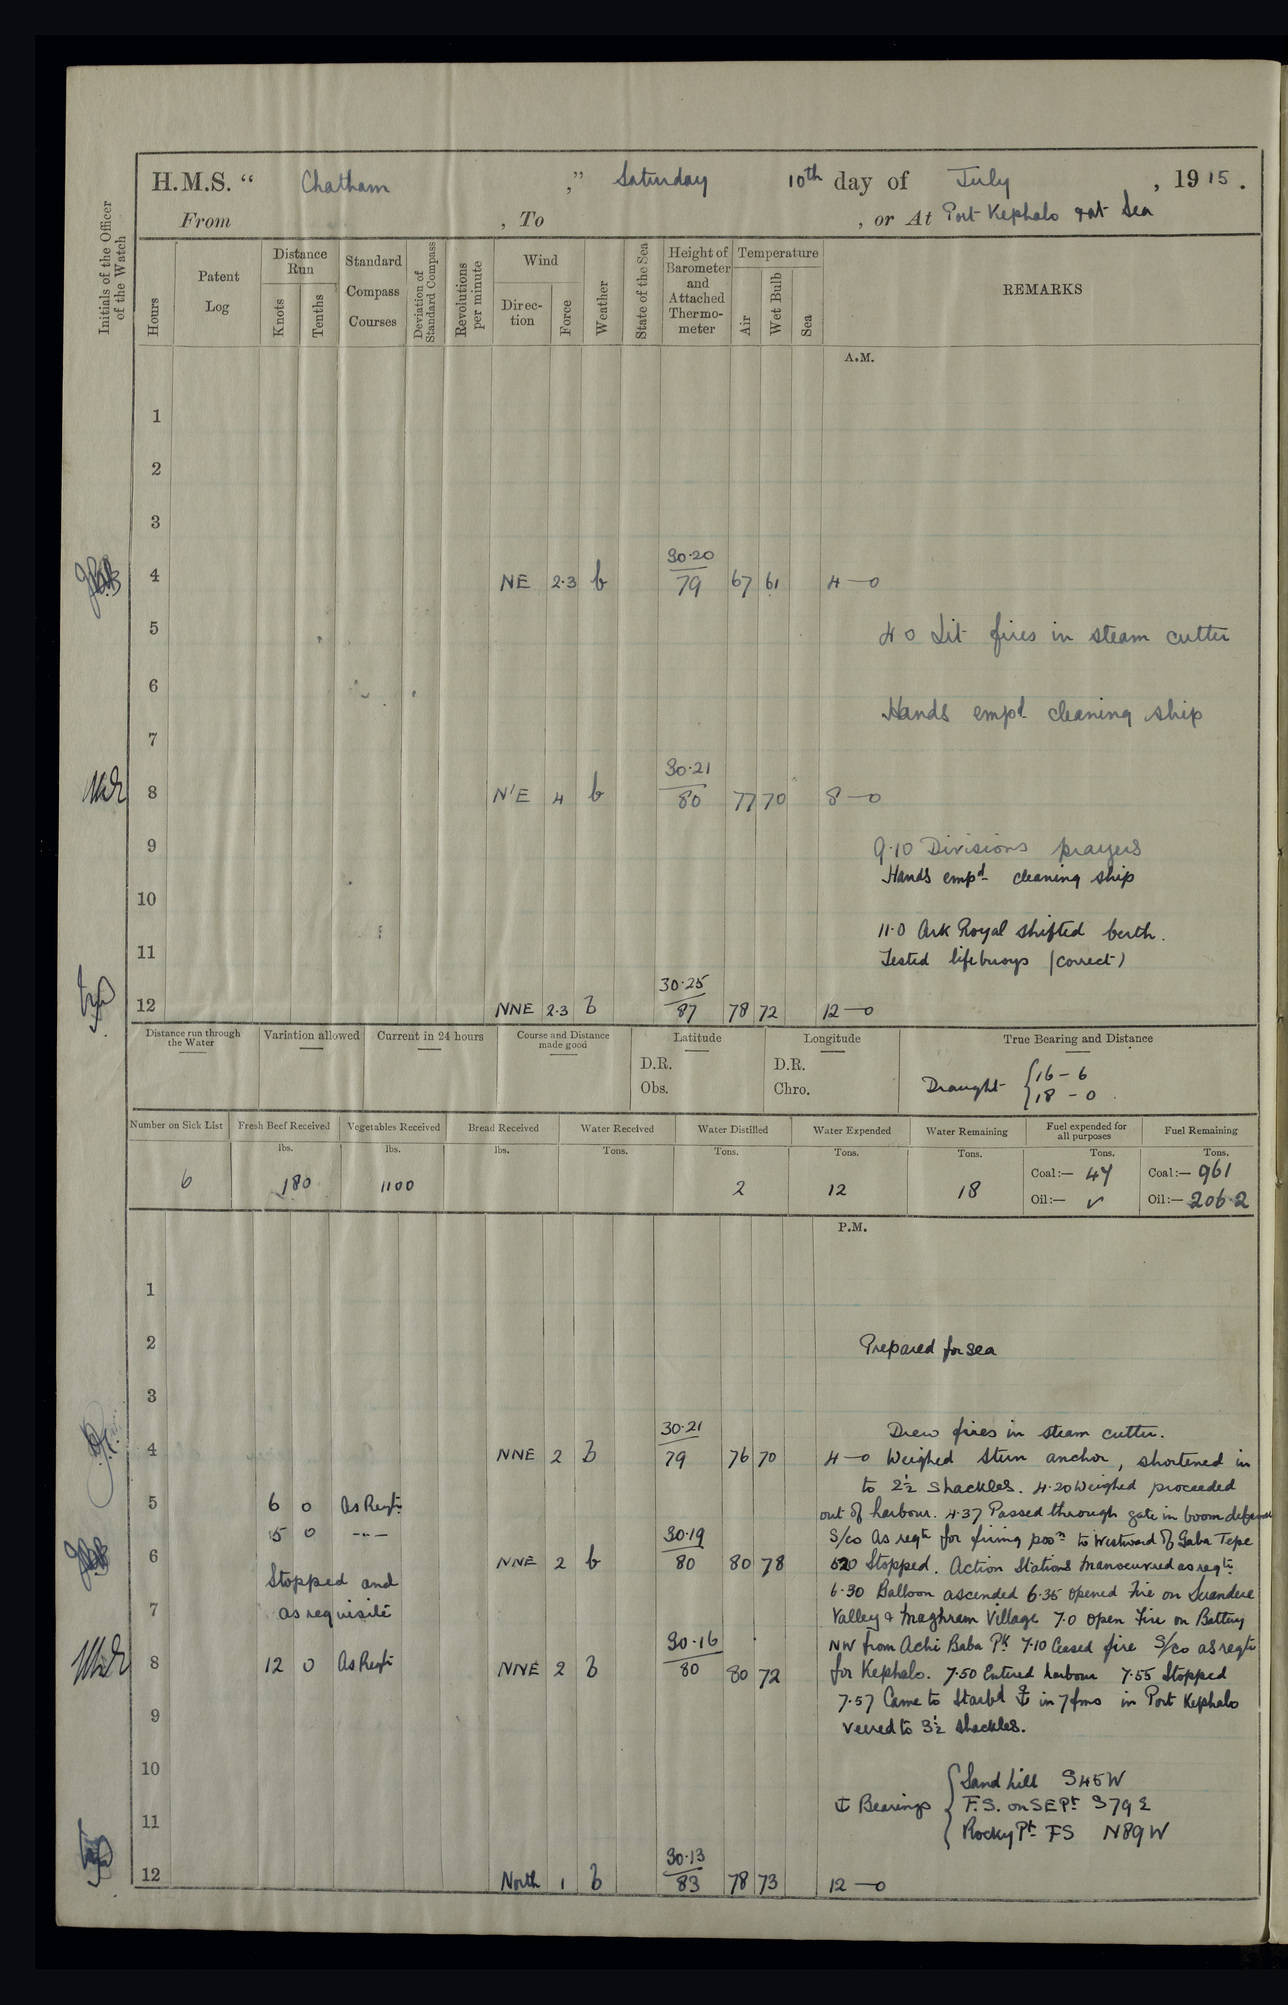 H.M.S. " Chatham ," Saturday 10th day of July , 1915.
From , To , or At Port Kephalo & at Sea
Initials of the Officer of the Watch
Hours
Patent Log
Distance Run
Knots
Tenths
Standard Compass Courses
Deviation of Standard Compass
Revolutions per minute
Wind
Direc-tion
Force
Weather
State of the Sea
Height of Barometer and Attached Thermo-meter
Temperature
Air
Wet Bulb
Sea
REMARKS
A.M.
1
2
3
30.20
4 NE 2.3 b 79 67 61 4—0
5 4 0 Lit fires in steam cutter
6
Hands empd cleaning ship
7
30.21
8 N'E 4 b 80 77 70 8—0
9 9.10 Divisions prayers
Hands empd cleaning ship
10
11.0 Ark Royal shifted berth.
11 Tested lifebuoys (correct)
30.25
12 NNE 2.3 b 87 78 72 12—0
Distance run through the Water
Variation allowed
Current in 24 hours
Course and Distance made good
Latitude
D.R.
Obs.
Longitude
D.R.
Chro.
True Bearing and Distance
Draught { 16 – 6
18 – 0
Number on Sick List Fresh Beef Received Vegetables Received Bread Received Water Received Water Distilled Water Expended Water Remaining Fuel expended for all purposes Fuel Remaining
lbs. lbs. lbs. Tons. Tons. Tons. Tons. Tons. Tons.
6 180 1100 2 12 18 Coal:— 47 Coal:— 961
Oil:— ✓ Oil:— 206.2
P.M.
1
2 Prepared for sea
3
30.21 Drew fires in steam cutter.
4 NNE 2 b 79 76 70 4—0 Weighed stern anchor, shortened in
to 2½ shackles. 4.20 Weighed proceeded
5 6 0 As Reqte out of harbour. 4.37 Passed through gate in boom defence
5 0 –"– 30.19 S/co As reqte for firing posn to Westward of Gaba Tepe
6 NNE 2 b 80 80 78 520 Stopped. Action Stations Manoeuvred as reqte
Stopped and 6.30 Balloon ascended 6.35 opened Fire on
7 as requisite Valley & Maghram Village 7.0 open Fire on Battery
30.16 NW from Achi Baba Pk 7.10 Ceased fire S/co as reqte
8 12 0 As Reqte NNE 2 b 80 80 72 for Kephalo. 7.50 Entered harbour 7.55 Stopped
7.57 Came to Starbd ⚓ in 7 fms in Port Kephalo
9 veered to 3½ shackles.
10 Sand hill S45W
11 ⚓ Bearings { F.S. on SE Pt S79E
Rocky Pt FS N89W
30.13
12 North 1 b 83 78 73 12—0